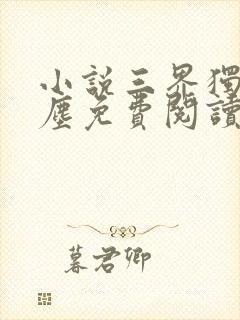 小說三界獨
塵免費閱讀
暮君卿